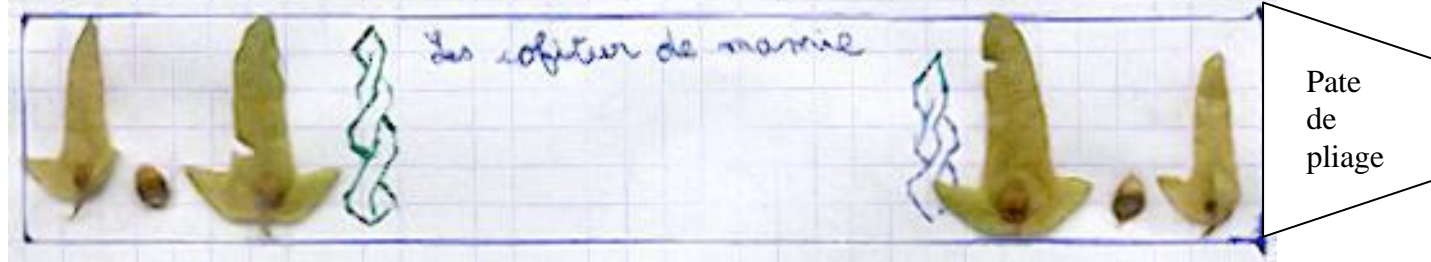 Les cofitur de mamie
Pate
de
pliage